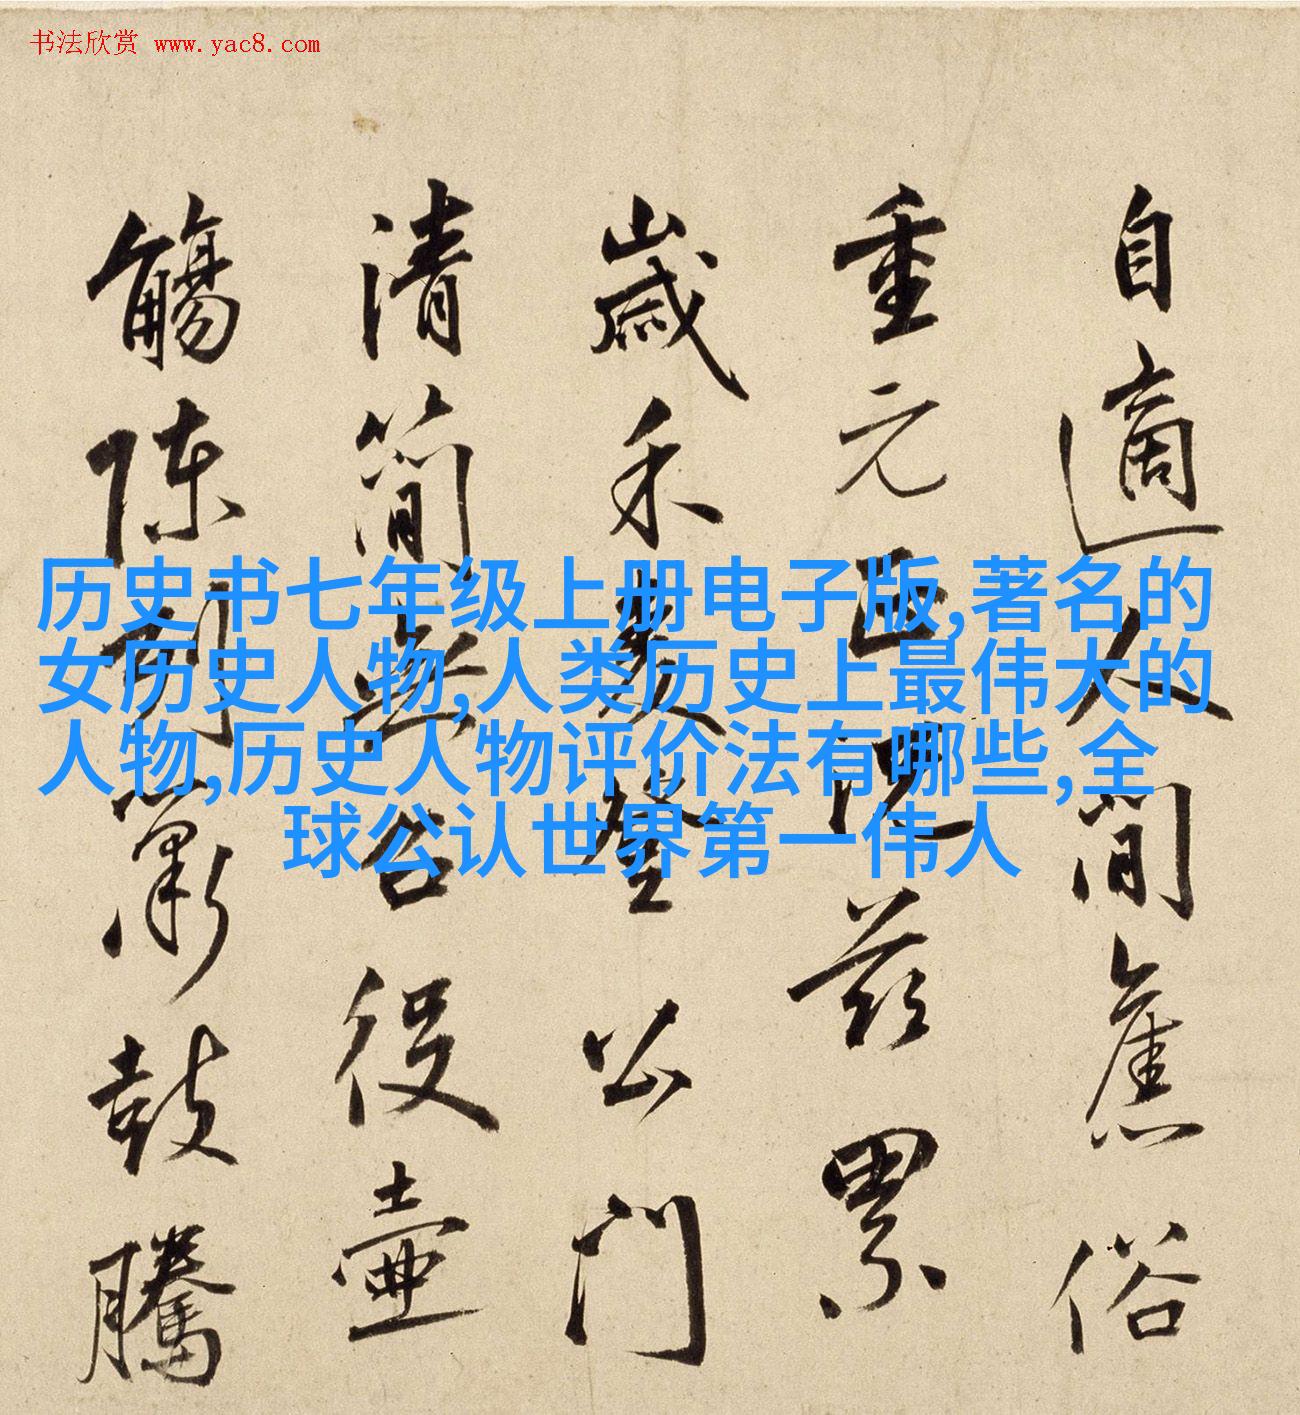 书法欣赏 www.yac8.com
自適人間舊俗
重元正況茲累
歲禾麥登公門
清簡無召役壺
觴陳列簫鼓騰
历史书七年级上册电子版,著名的
女历史人物,人类历史上最伟大的
人物,历史人物评价法有哪些,全
球公认世界第一伟人